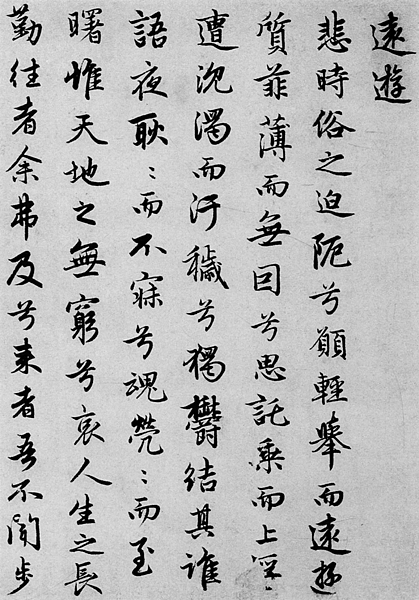 遠遊
悲時俗之迫阨兮願輕舉而遠遊
質菲薄而無因兮思託乘而上浮
遭沈濁而汙穢兮獨鬱結其誰
語夜耿〻而不寐兮魂煢〻而至
曙惟天地之無窮兮哀人生之長
勤往者余弗及兮来者吾不聞步